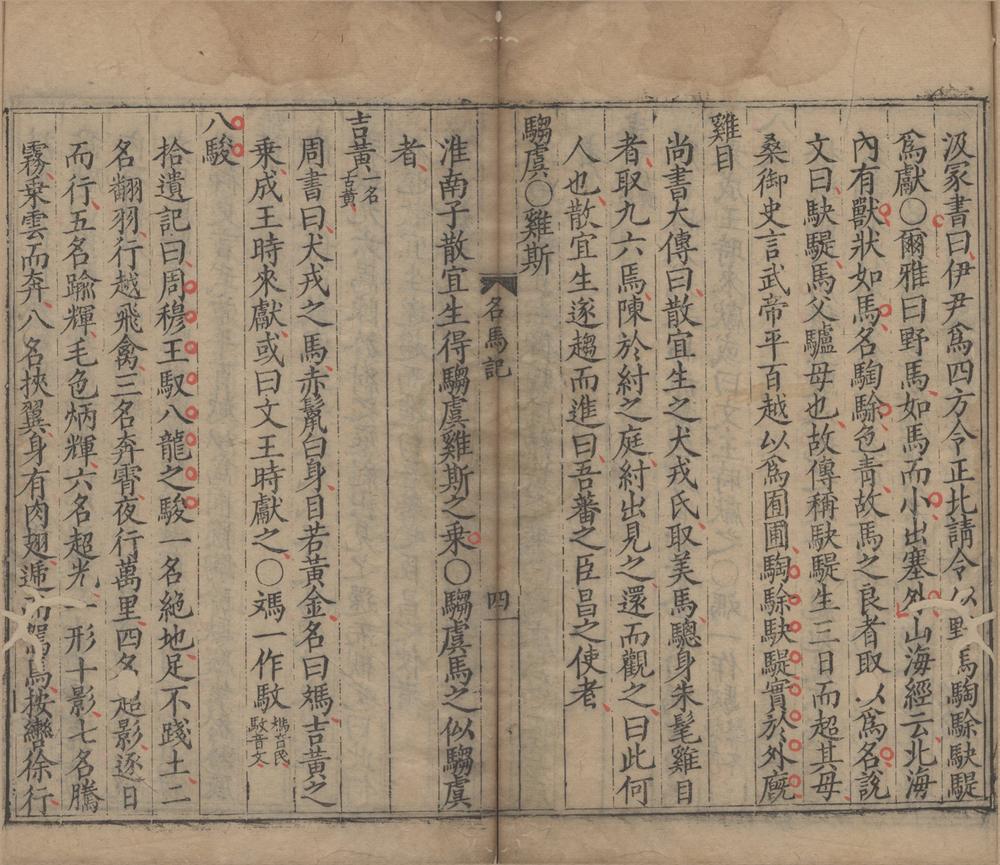 汲冢書曰伊尹爲四方令正北請令以野馬騊駼駃騠
爲獻○爾雅曰野馬如馬而小出塞外山海經云北海
內有獸狀如馬名騊駼色青故馬之良者取以爲名說
文曰駃騠馬父驢母也故傳稱駃騠生三日而超其母
桑御史言武帝平百越以爲囿圃騊駼駃騠實於外廐
雞目
尚書大傳曰散宜生之犬戎氏取美馬驄身朱髦雞目
者取九六馬陳於紂之庭紂出見之還而觀之曰此何
人也散宜生遂趨而進曰吾蕃之臣昌之使者
騶虞○雞斯
名馬記
四
淮南子散宜生得騶虞雞斯之乗○騶虞馬之似騶虞
者
吉黃一名古黃
周書曰犬戎之馬赤鬣白身目若黃金名曰媽吉黃之
乗成王時來獻或曰文王時獻之○媽一作馼媽音民馼音文
八駿
拾遺記曰周穆王馭八龍之駿一名絕地足不踐土二
名翻羽行越飛禽三名奔霄夜行萬里四名超影逐日
而行五名踰輝毛色炳輝六名超光一形十影七名騰
霧椉雲而奔八名挾翼身有肉翅遞而駕馬按轡徐行